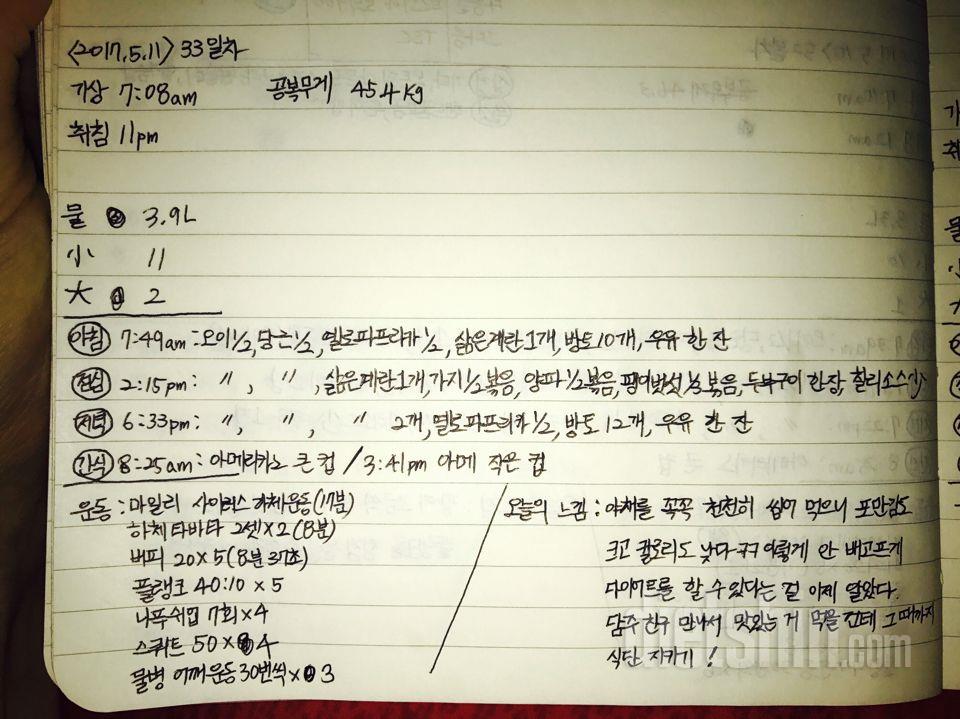 <2017.5.11> 33일차
기상 7:08am 공복무게 45.4kg
취침 11pm
물 3.9L
小 11
大 2
아침 7:49am : 오이1/2, 당근1/2, 옐로파프리카1/2, 삶은계란1개, 방토10개, 우유 한 잔
점심 2:15pm : 〃, 〃, 삶은계란1개, 가지1/2볶음, 양파1/2볶음, 팽이버섯1/2볶음, 두부구이 한장, 칠리소스
저녁 6:33pm : 〃, 〃, 〃 2개, 옐로파프리카1/2, 방토 12개, 우유 한 잔
간식 8:25am : 아메리카노 큰 컵 / 3:41pm 아메 작은 컵
운동 : 마일리 사이러스 하체운동(17분)
하체 타바타 2셋×2 (8분)
버피 20×5 (8분 37초)
플랭크 40:10 × 5
니푸쉬업 7회×4
스쿼트 50×4
물병 어깨운동 30번씩×3
오늘의 느낌 : 야채를 꼭꼭 천천히 씹어 먹으니 포만감도
크고 칼로리도 낮다 ㅋㅋ 이렇게 안 배고프게
다이어트를 할 수 있다는 걸 이제 알았다.
담주 친구 만나서 맛있는 거 먹을 건데 그 때까지
식단 지키기!